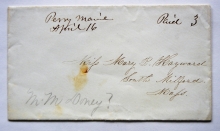 Perry Maine Paid 3
April 16
Miss Mary F. Hayward
South Milford
Mass.